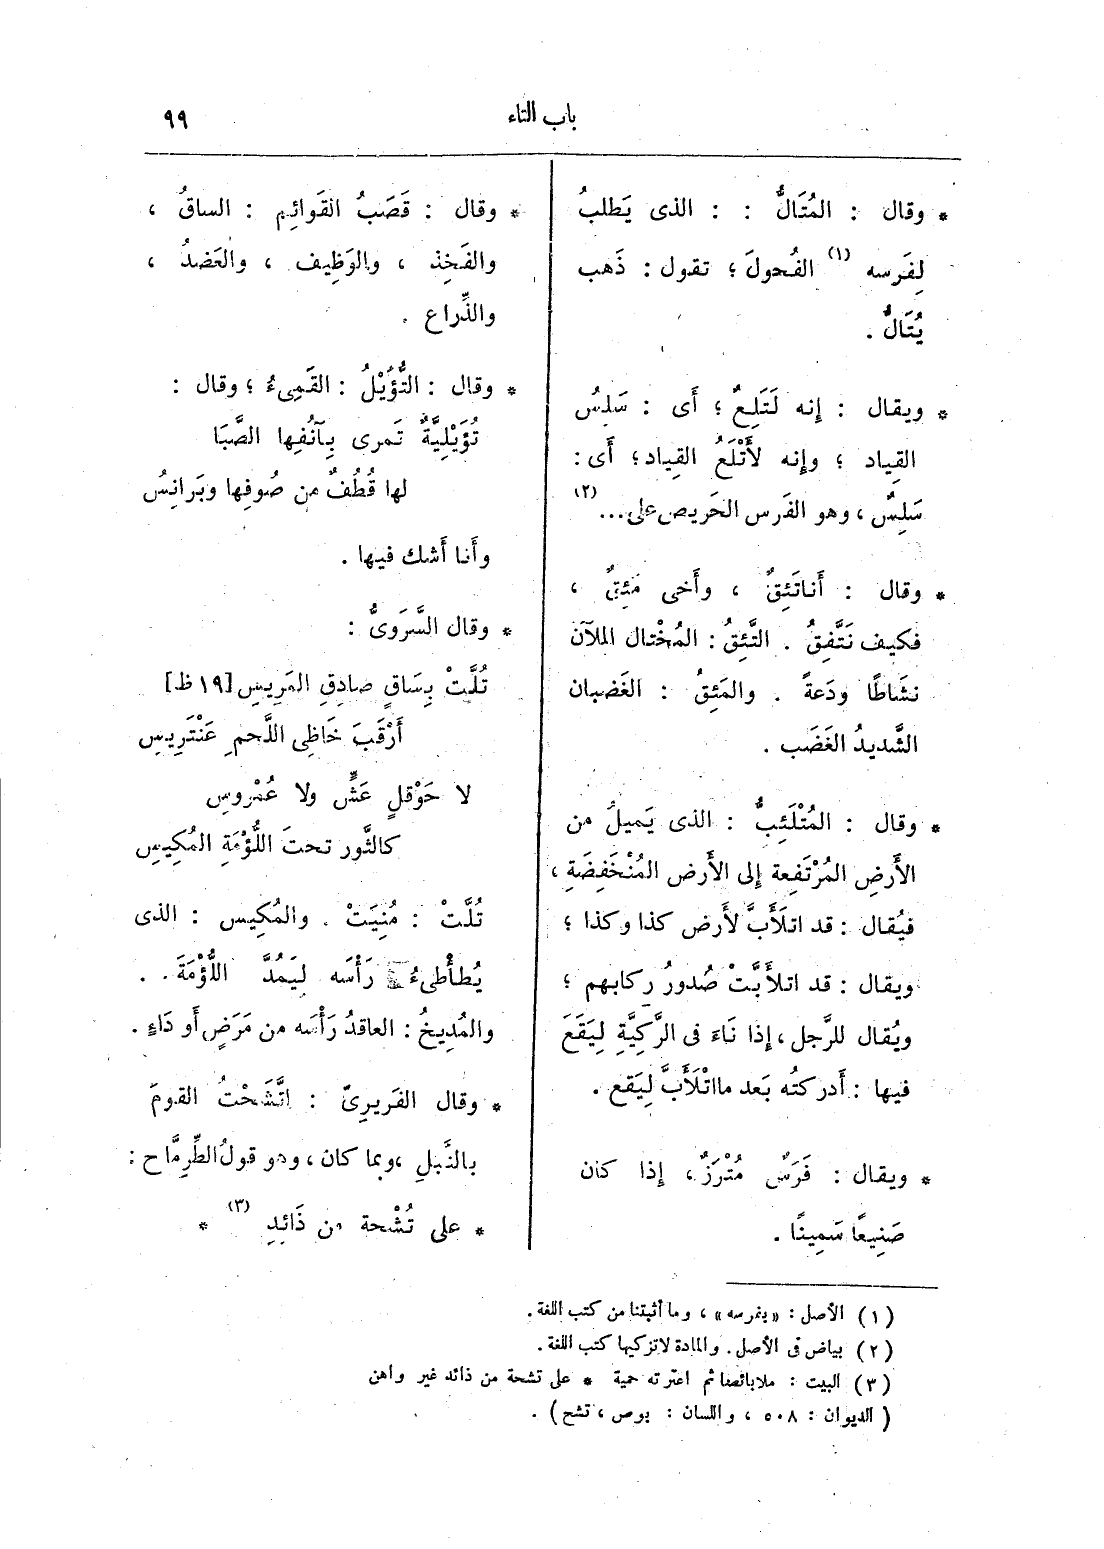 باب التاء
٩٩
* وقال : المُتَالُّ : : الذى يَطلبُ
لِفَرسه (١) الفُحولَ ؛ تقول : ذَهب
يُتَالُّ .
* ويقال : إنه لَتَلِعٌ ؛ أى : سَلِسُ
القِياد ؛ وإنه لأَتْلَعُ القِياد ؛ أى :
سَلِسٌ ، وهو الفَرس الحَريص على ... (٢)
* وقال : أَنا تَئِقٌ ، وأَخى مَئِقٌ ،
فكيف نَتَّفِقُ . التَّئِقُ : المُخْتال الملآن
نشَاطًا ودَعةً . والمَئِقُ : الغَضبان
الشَّديدُ الغَضَب .
* وقال : المُتْلَئِبُّ : الذى يَميلُ من
الأَرضِ المُرْتَفعة إلى الأَرض المُنْخَفِضَةِ ،
فيُقال : قد اتلَأَبَّ لأَرض كذا وكذا ؛
ويقال : قد اتلأَبَّتْ صُدورُ رِكابهم ؛
ويُقال للرَّجل ، إذا نَاءَ فى الرَّكِيَّةِ لِيَقَعَ
فيها : أَدركتُه بَعد ما اتْلَأَبَّ لِيَقع .
* ويقال : فَرَسٌ مُتْرَزٌ ، إذا كان
صَنِيعًا سَمِينًا .
* وقال : قَصَبُ القَوائِم : الساقُ ،
والفَخِذ ، والوَظِيف ، والعَضدُ ،
والذِّراع .
* وقال : التُّؤَيْلُ : القَمِىءُ ؛ وقال :
تُؤَيْلِيَّةٌ تَمرى بِآنُفِها الصَّبَا
لها قُطُفٌ من صُوفِها وبَرانِسُ
وأَنا أَشك فيها .
* وقال السَّرَوىُّ :
تُلَّتْ بِسَاقٍ صادِقِ المَرِيسِ [١٩ ظ]
أَرْقَبَ خَاظِى اللَّحمِ عَنْتَرِيسِ
لا حَوْقلٍ عَشٍّ ولا عُمْروسِ
كالثَّور تحتَ اللُّؤْمَةِ المُكِيسِ
تُلَّتْ : مُنِيَتْ . والمُكِيس : الذى
يُطأْطِىءُ رَأْسَه لِيَمُدَّ اللُّؤْمَةَ . .
والمُدِيخُ : العاقدُ رَأْسَه من مَرَضٍ أَو دَاءٍ .
* وقال الفَريرىّ : اتَّشَحْتُ القومَ
بالنَّبلِ ، وبما كان ، وهو قولُ الطِّرِمَّاح :
* على تُشْحة من ذَائِدِ (٣) *
(١) الأصل : « بفرسه » ، وما أثبتنا من كتب اللغة .
(٢) بياض فى الأصل . والمادة لا تزكيها كتب اللغة .
(٣) البيت : ملا بائصا ثم اعترته حمية * على تشحة من ذائد غير واهن
( الديوان : ٥٠٨ ، واللسان : بوص ، تشح ) .